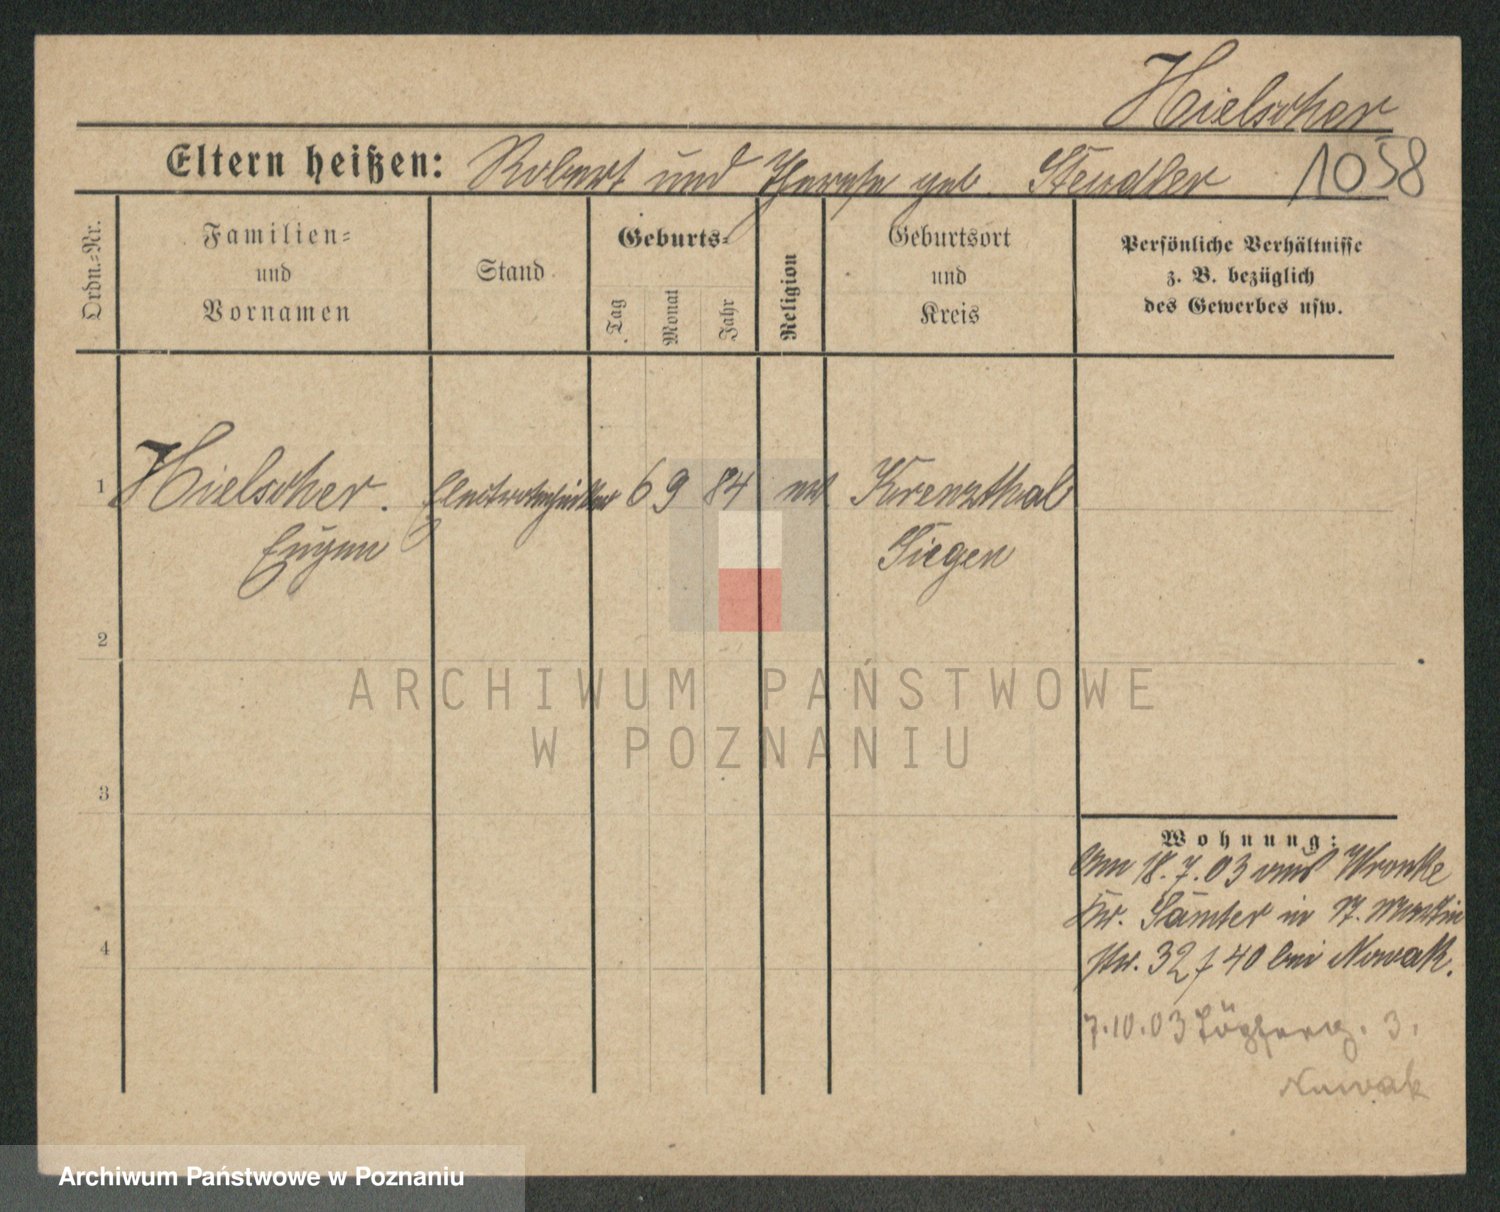 Hielscher
Eltern heißen: Robert und Therese geb. Stendler 1058
Ordn.=Nr.
Familien=
und
Vornamen
Stand
Geburts=
Tag
Monat
Jahr
Religion
Geburtsort
und
Kreis
Persönliche Verhältnisse
z. B. bezüglich
des Gewerbes usw.
1 Hielscher. Electrotechniker 6 9 84 ev. Kreuzthal
Eugen Siegen
2
3
4
ARCHIWUM PAŃSTWOWE
W POZNANIU
Wohnung:
Am 18.7.03 aus Wronke
Kr. Samter in St. Martin
str. 32/40 bei Nowak.
7.10.03 3.
Nowak
Archiwum Państwowe w Poznaniu